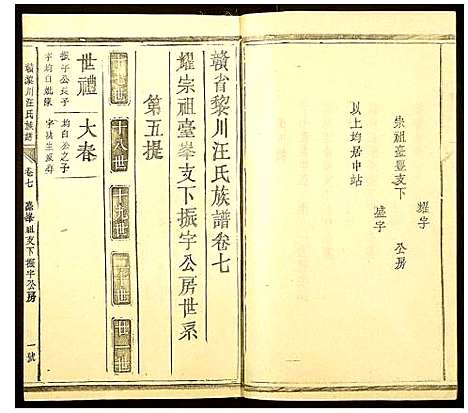 耀字
崇祖臺豐支下　公房
盛字
以上均居中站
贛省黎川汪氏族譜卷七
耀宗祖臺峯支下振字公房世系
第五提
十七世
十八世
十九世
二十世
廿一世
世禮
振字公長子
字均白
大春
均白公之子
贛黎川汪氏族譜
卷七
臺峯祖支下振字公房
一號